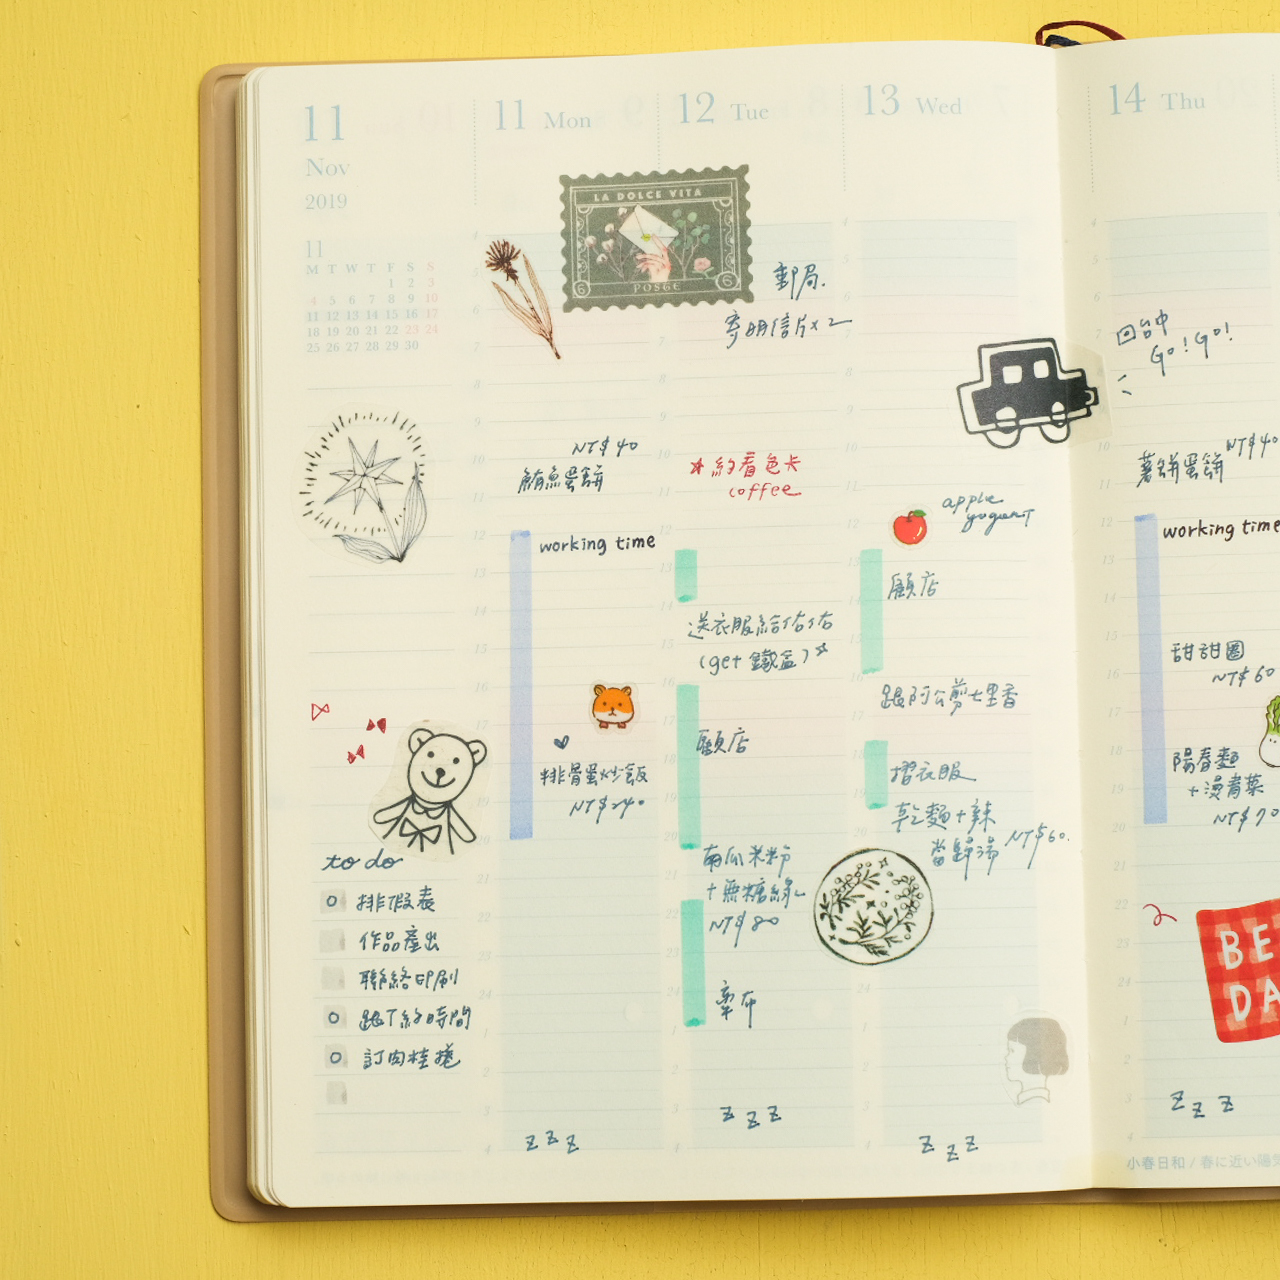 11
Nov
2019
11
M T W T F S S
1 2 3
4 5 6 7 8 9 10
11 12 13 14 15 16 17
18 19 20 21 22 23 24
25 26 27 28 29 30
to do
排假表
作品產出
聯絡印刷
跟T約時間
訂肉桂捲
11 Mon
NT$40
鮪魚蛋餅
working time
排骨蛋炒飯
NT$240
z z z
12 Tue
LA DOLCE VITA
6 POSTE 6
郵局.
寄明信片x2
約看色卡
coffee
送衣服給佑佑
(get 鐵盒)
顧店
南瓜米粉
+無糖綠
NT$80
z z z
13 Wed
apple
yogurt
顧店
跟阿公剪七里香
摺衣服
乾麵+辣
當歸湯 NT$60.
z z z
14 Thu
回台中
Go! Go!
NT$40
薯餅蛋餅
working time
甜甜圈
NT$60
陽春麵
+燙青菜
NT$70
BE
DA
z z z
小春日和 / 春に近い陽気